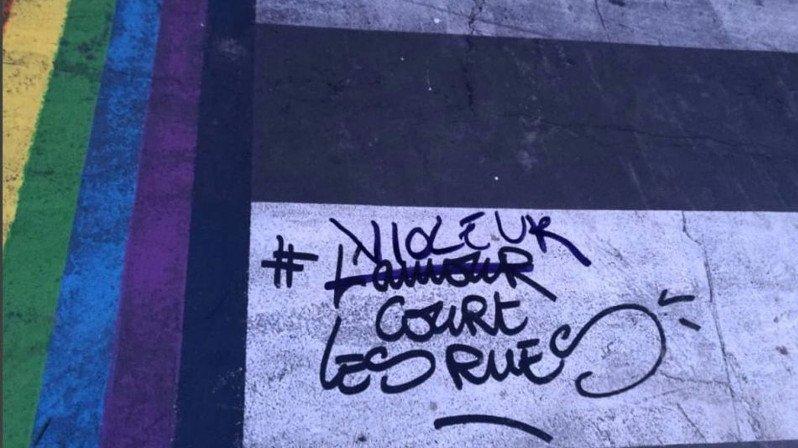 VIOLEUR
# L'amour
COURT
LES RUES